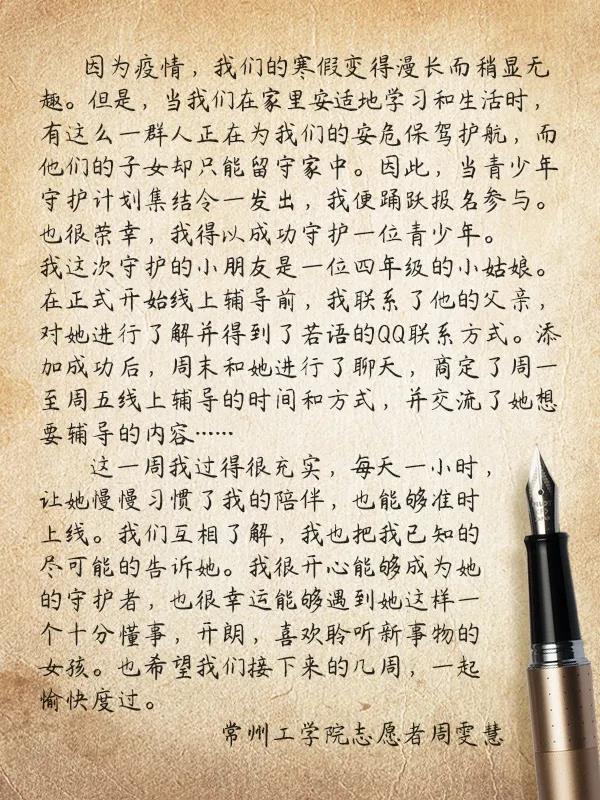 因为疫情，我们的寒假变得漫长而稍显无
趣。但是，当我们在家里安适地学习和生活时，
有这么一群人正在为我们的安危保驾护航，而
他们的子女却只能留守家中。因此，当青少年
守护计划集结令一发出，我便踊跃报名参与。
也很荣幸，我得以成功守护一位青少年。
我这次守护的小朋友是一位四年级的小姑娘。
在正式开始线上辅导前，我联系了他的父亲，
对她进行了解并得到了若语的QQ联系方式。添
加成功后，周末和她进行了聊天，商定了周一
至周五线上辅导的时间和方式，并交流了她想
要辅导的内容……
这一周我过得很充实，每天一小时，
让她慢慢习惯了我的陪伴，也能够准时
上线。我们互相了解，我也把我已知的
尽可能的告诉她。我很开心能够成为她
的守护者，也很幸运能够遇到她这样一
个十分懂事，开朗，喜欢聆听新事物的
女孩。也希望我们接下来的几周，一起
愉快度过。
常州工学院志愿者周雯慧